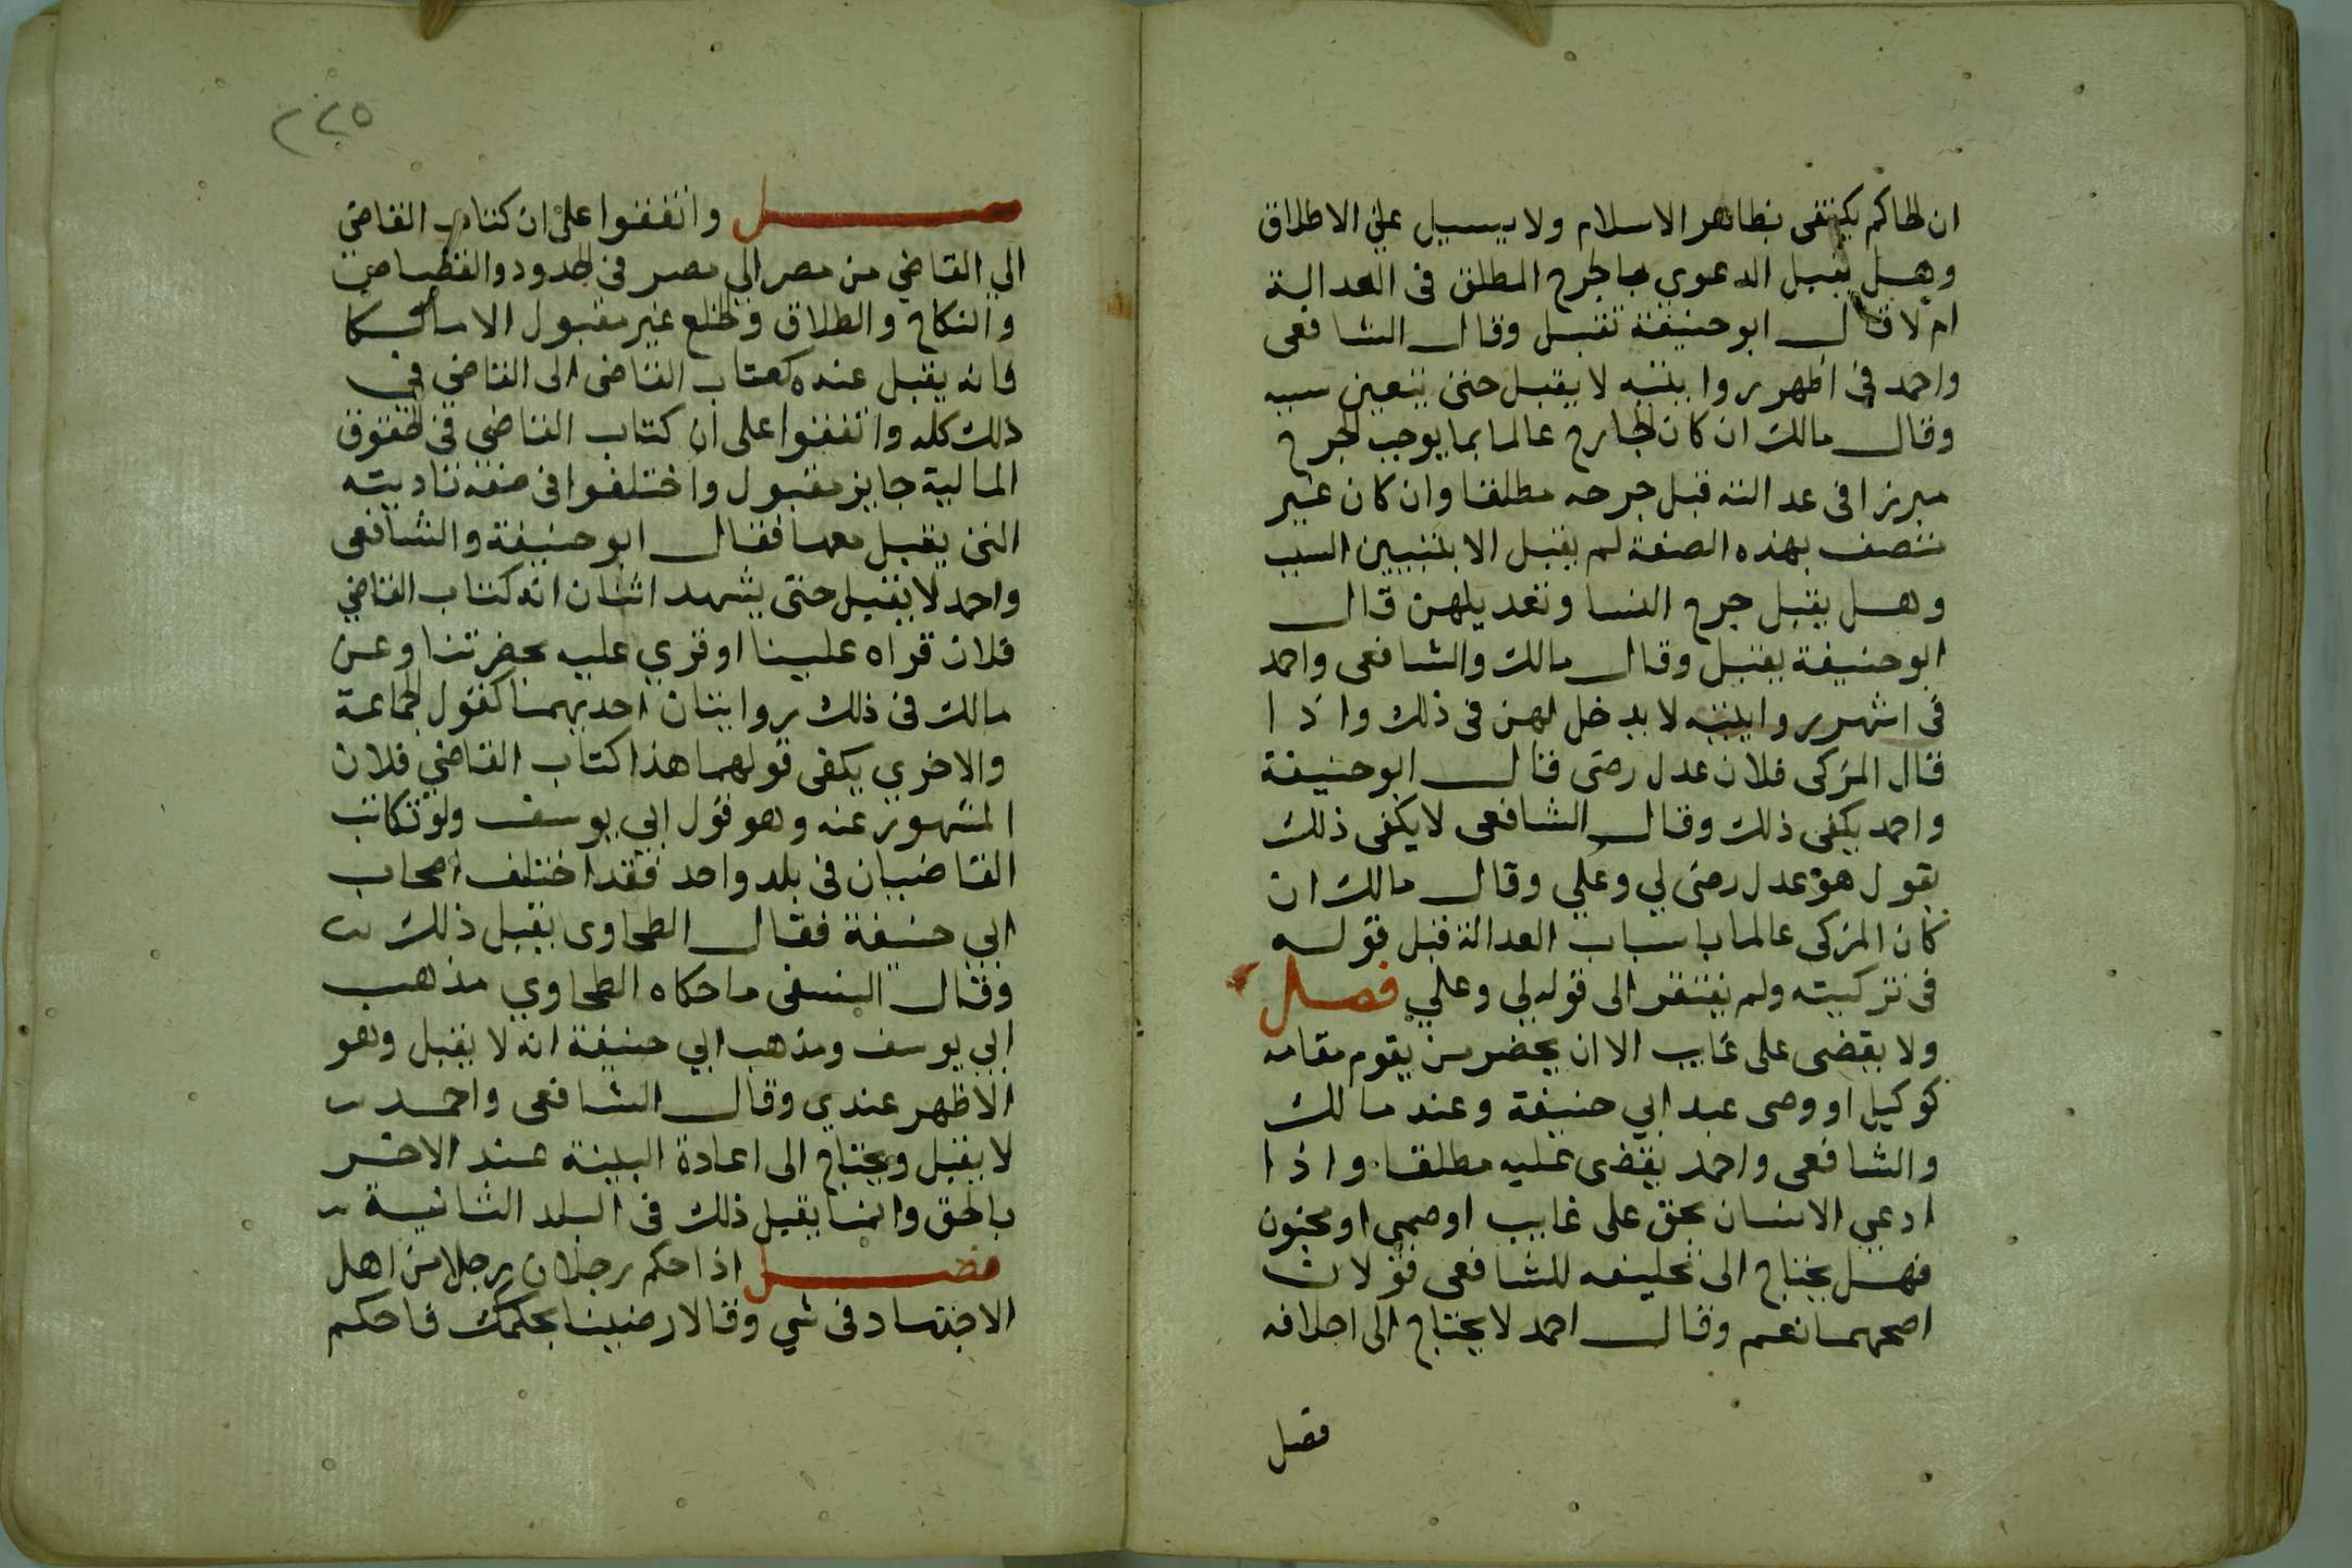 ان الحاكم يكتفى بظاهر الاسلام ولا يسيل على الاطلاق
وهل يقبل الدعوي بالجرح المطلق فى العدالة
ام لا قال ابو حنيفة تقبل وقال الشافعى
واحمد فى اظهر روايتيه لا يقبل حتى يتعين سببه
وقال مالك ان كان الجارح عالما بما يوجب الجرح
مبرزا فى عدالته قبل جرحه مطلقا وان كان غير
متصف بهذه الصفة لم يقبل الا بتبيين السبب
وهل يقبل جرح النسا وتعديلهن قال
ابو حنيفة يقبل وقال مالك والشافعى واحمد
فى اشهر روايتيه لا يدخل لهن فى ذلك واذا
قال المزكى فلان عدل رضى قال ابو حنيفة
واحمد يكفى ذلك وقال الشافعى لا يكفى ذلك
يقول هو عدل رضى لي وعلي وقال مالك ان
كان المزكى عالما باسباب العدالة قبل قوله
فى تزكيته ولم يفتقر الى قوله لي وعلي فصل
ولا يقضى على غايب الا ان يحضر من يقوم مقامه
كوكيل او وصى عند ابي حنيفة وعند مالك
والشافعى واحمد يقضى عليه مطلقا واذا
ادعي الانسان بحق على غايب او صبى او مجنون
فهل يحتاج الى تحليفه للشافعى قولان
اصحهما نعم وقال احمد لا يحتاج الى احلافه
فصل
٢٢٥
فصل واتفقوا على ان كتاب القاضى
الي القاضي من مصر الي مصر فى الحدود والقصاص
والنكاح والطلاق والخلع غير مقبول الا مالكا
فانه يقبل عنده كتاب القاضى الى القاضي في
ذلك كله واتفقوا على ان كتاب القاضي فى الحقوق
المالية جايز مقبول واختلفوا فى صفة تاديته
التى يقبل معها فقال ابو حنيفة والشافعى
واحمد لا يقبل حتى يشهد اثنان انه كتاب القاضي
فلان قراه علينا او قري عليه بحضرتنا وعن
مالك فى ذلك روايتان احديهما كقول الجماعة
والاخري يكفى قولهما هذا كتاب القاضي فلان
المشهور عنه وهو قول ابي يوسف ولو تكاتب
القاضيان فى بلد واحد فقد اختلف اصحاب
ابي حنيفة فقال الطحاوى يقبل ذلك
وقال البيهقى ما حكاه الطحاوي مذهب
ابي يوسف ومذهب ابي حنيفة انه لا يقبل وهو
الاظهر عندي وقال الشافعى واحمد
لا يقبل ويحتاج الى اعادة البينة عند الاخر
بالحق وانما يقبل ذلك فى البلد الثانية
فصل اذا حكم رجلان رجلا من اهل
الاجتهاد فى شي وقالا رضينا بحكمك فاحكم